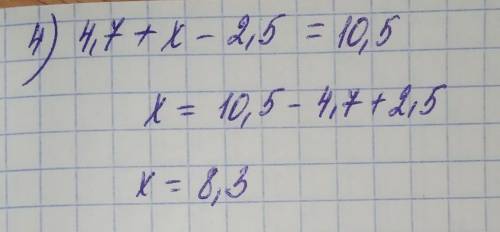 4) 4,7 + x - 2,5 = 10,5
x = 10,5 - 4,7 + 2,5
x = 8,3